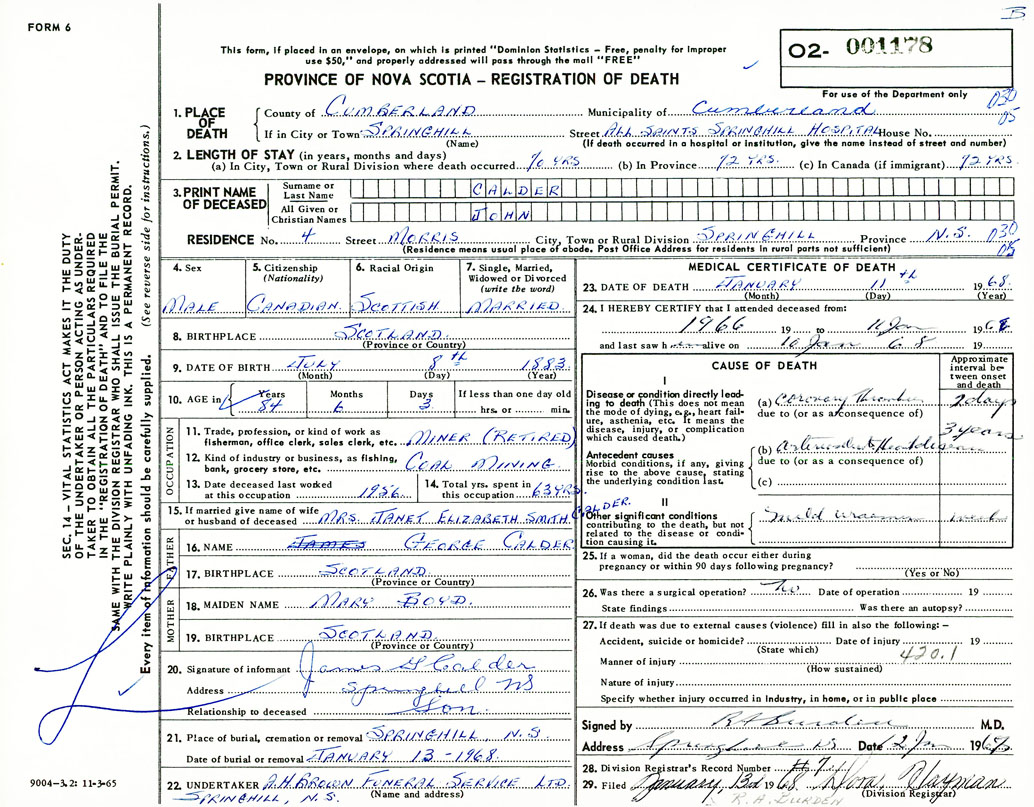 B
FORM 6
This form, if placed in an envelope, on which is printed "Dominion Statistics – Free, penalty for improper
use $50," and properly addressed will pass through the mail "FREE"
O2- 001178
PROVINCE OF NOVA SCOTIA – REGISTRATION OF DEATH
For use of the Department only
030
05
1. PLACE OF DEATH
County of CUMBERLAND Municipality of Cumberland
If in City or Town SPRINGHILL Street ALL SAINTS SPRINGHILL HOSPITAL House No.
(Name) (If death occurred in a hospital or institution, give the name instead of street and number)
2. LENGTH OF STAY (in years, months and days)
(a) In City, Town or Rural Division where death occurred 70 YRS (b) In Province 72 YRS. (c) In Canada (if immigrant) 72 YRS.
3. PRINT NAME OF DECEASED
Surname or Last Name CALDER
All Given or Christian Names JOHN
RESIDENCE No. 4 Street MORRIS City, Town or Rural Division SPRINGHILL Province N.S. 030
05
(Residence means usual place of abode. Post Office Address for residents in rural parts not sufficient)
4. Sex
MALE
5. Citizenship
(Nationality)
CANADIAN.
6. Racial Origin
SCOTTISH
7. Single, Married,
Widowed or Divorced
(write the word)
MARRIED.
8. BIRTHPLACE SCOTLAND.
(Province or Country)
9. DATE OF BIRTH JULY 8th 1883
(Month) (Day) (Year)
10. AGE in Years Months Days If less than one day old
84 6 3 hrs. or min.
OCCUPATION
11. Trade, profession, or kind of work as
fisherman, office clerk, sales clerk, etc. MINER (RETIRED)
12. Kind of industry or business, as fishing,
bank, grocery store, etc. COAL MINING.
13. Date deceased last worked
at this occupation 1956.
14. Total yrs. spent in
this occupation 63 YRS.
15. If married give name of wife
or husband of deceased MRS. JANET ELIZABETH SMITH CALDER.
FATHER
16. NAME JAMES GEORGE CALDER
17. BIRTHPLACE SCOTLAND
(Province or Country)
MOTHER
18. MAIDEN NAME MARY BOYD.
19. BIRTHPLACE SCOTLAND
(Province or Country)
20. Signature of informant James G Calder
Address Springhill NS
Relationship to deceased Son.
21. Place of burial, cremation or removal SPRINGHILL, N.S.
Date of burial or removal JANUARY 13 - 1968.
22. UNDERTAKER A.H. BROWN FUNERAL SERVICE LTD.
SPRINGHILL, N.S. (Name and address)
MEDICAL CERTIFICATE OF DEATH
23. DATE OF DEATH JANUARY 11th 1968.
(Month) (Day) (Year)
24. I HEREBY CERTIFY that I attended deceased from:
1966 19 to 11 Jan 1968
and last saw h alive on 10 Jan 68 19
CAUSE OF DEATH
Approximate
interval be-
tween onset
and death
I
Disease or condition directly lead-
ing to death (This does not mean
the mode of dying, e.g., heart fail-
ure, asthenia, etc. It means the
disease, injury, or complication
which caused death.)
(a) Coronary Thrombosis 2 days
due to (or as a consequence of)
Antecedent causes
Morbid conditions, if any, giving
rise to the above cause, stating
the underlying condition last.
3 years
(b)
due to (or as a consequence of)
(c)
II
Other significant conditions
contributing to the death, but not
related to the disease or condi-
tion causing it.
mild
25. If a woman, did the death occur either during
pregnancy or within 90 days following pregnancy?
(Yes or No)
26. Was there a surgical operation? No Date of operation 19
State findings Was there an autopsy?
27. If death was due to external causes (violence) fill in also the following: –
Accident, suicide or homicide? Date of injury 19
(State which) 420.1
Manner of injury
(How sustained)
Nature of injury
Specify whether injury occurred in industry, in home, or in public place
Signed by R A Burden M.D.
Address Springhill NS Date 12 Jan 196
28. Division Registrar's Record Number #7
29. Filed January 13th 1968
(Division Registrar)
R. A. BURDEN
SEC. 14 – VITAL STATISTICS ACT MAKES IT THE DUTY
OF THE UNDERTAKER OR PERSON ACTING AS UNDER-
TAKER TO OBTAIN ALL THE PARTICULARS REQUIRED
IN THE "REGISTRATION OF DEATH" AND TO FILE THE
SAME WITH THE DIVISION REGISTRAR WHO SHALL ISSUE THE BURIAL PERMIT.
WRITE PLAINLY WITH UNFADING INK. THIS IS A PERMANENT RECORD.
Every item of information should be carefully supplied. (See reverse side for instructions.)
9004–3.2: 11-3-65